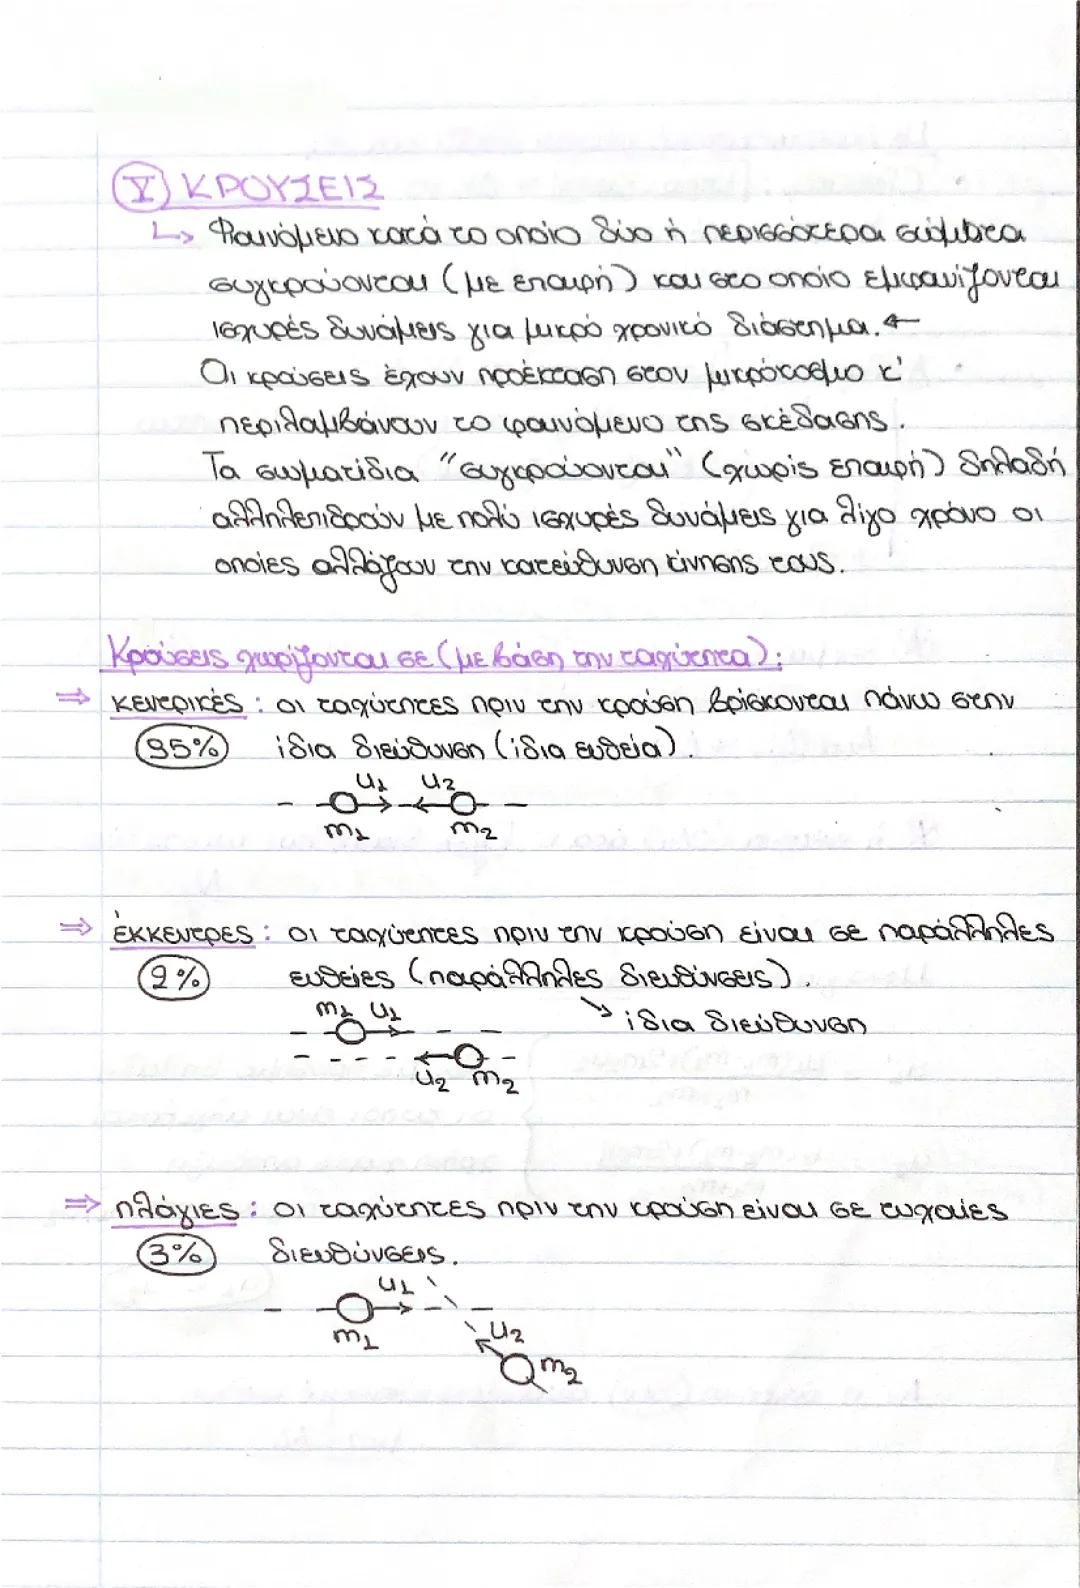 Ⅴ) ΚΡΟΥΣΕΙΣ
↳ Φαινόμενο κατά το οποίο δύο ή περισσότερα σώματα
συγκρούονται (με επαφή) και στο οποίο εμφανίζονται
ισχυρές δυνάμεις για μικρό χρονικό διάστημα. ←
Οι κρούσεις έχουν προέκταση στον μικρόκοσμο κ'
περιλαμβάνουν το φαινόμενο της σκέδασης.
Τα σωματίδια "συγκρούονται" (χωρίς επαφή) δηλαδή
αλληλεπιδρούν με πολύ ισχυρές δυνάμεις για λίγο χρόνο οι
οποίες αλλάζουν την κατεύθυνση κίνησης τους.
Κρούσεις χωρίζονται σε (με βάση την ταχύτητα):
⇒ κεντρικές : οι ταχύτητες πριν την κρούση βρίσκονται πάνω στην
95% ίδια διεύθυνση (ίδια ευθεία).
u1 u2
m1 m2
⇒ έκκεντρες : οι ταχύτητες πριν την κρούση είναι σε παράλληλες
2% ευθείες (παράλληλες διευθύνσεις).
m1 u1 ↘ ίδια διεύθυνση
u2 m2
⇒ πλάγιες : οι ταχύτητες πριν την κρούση είναι σε τυχαίες
3% διευθύνσεις.
u1
m1 u2
m2